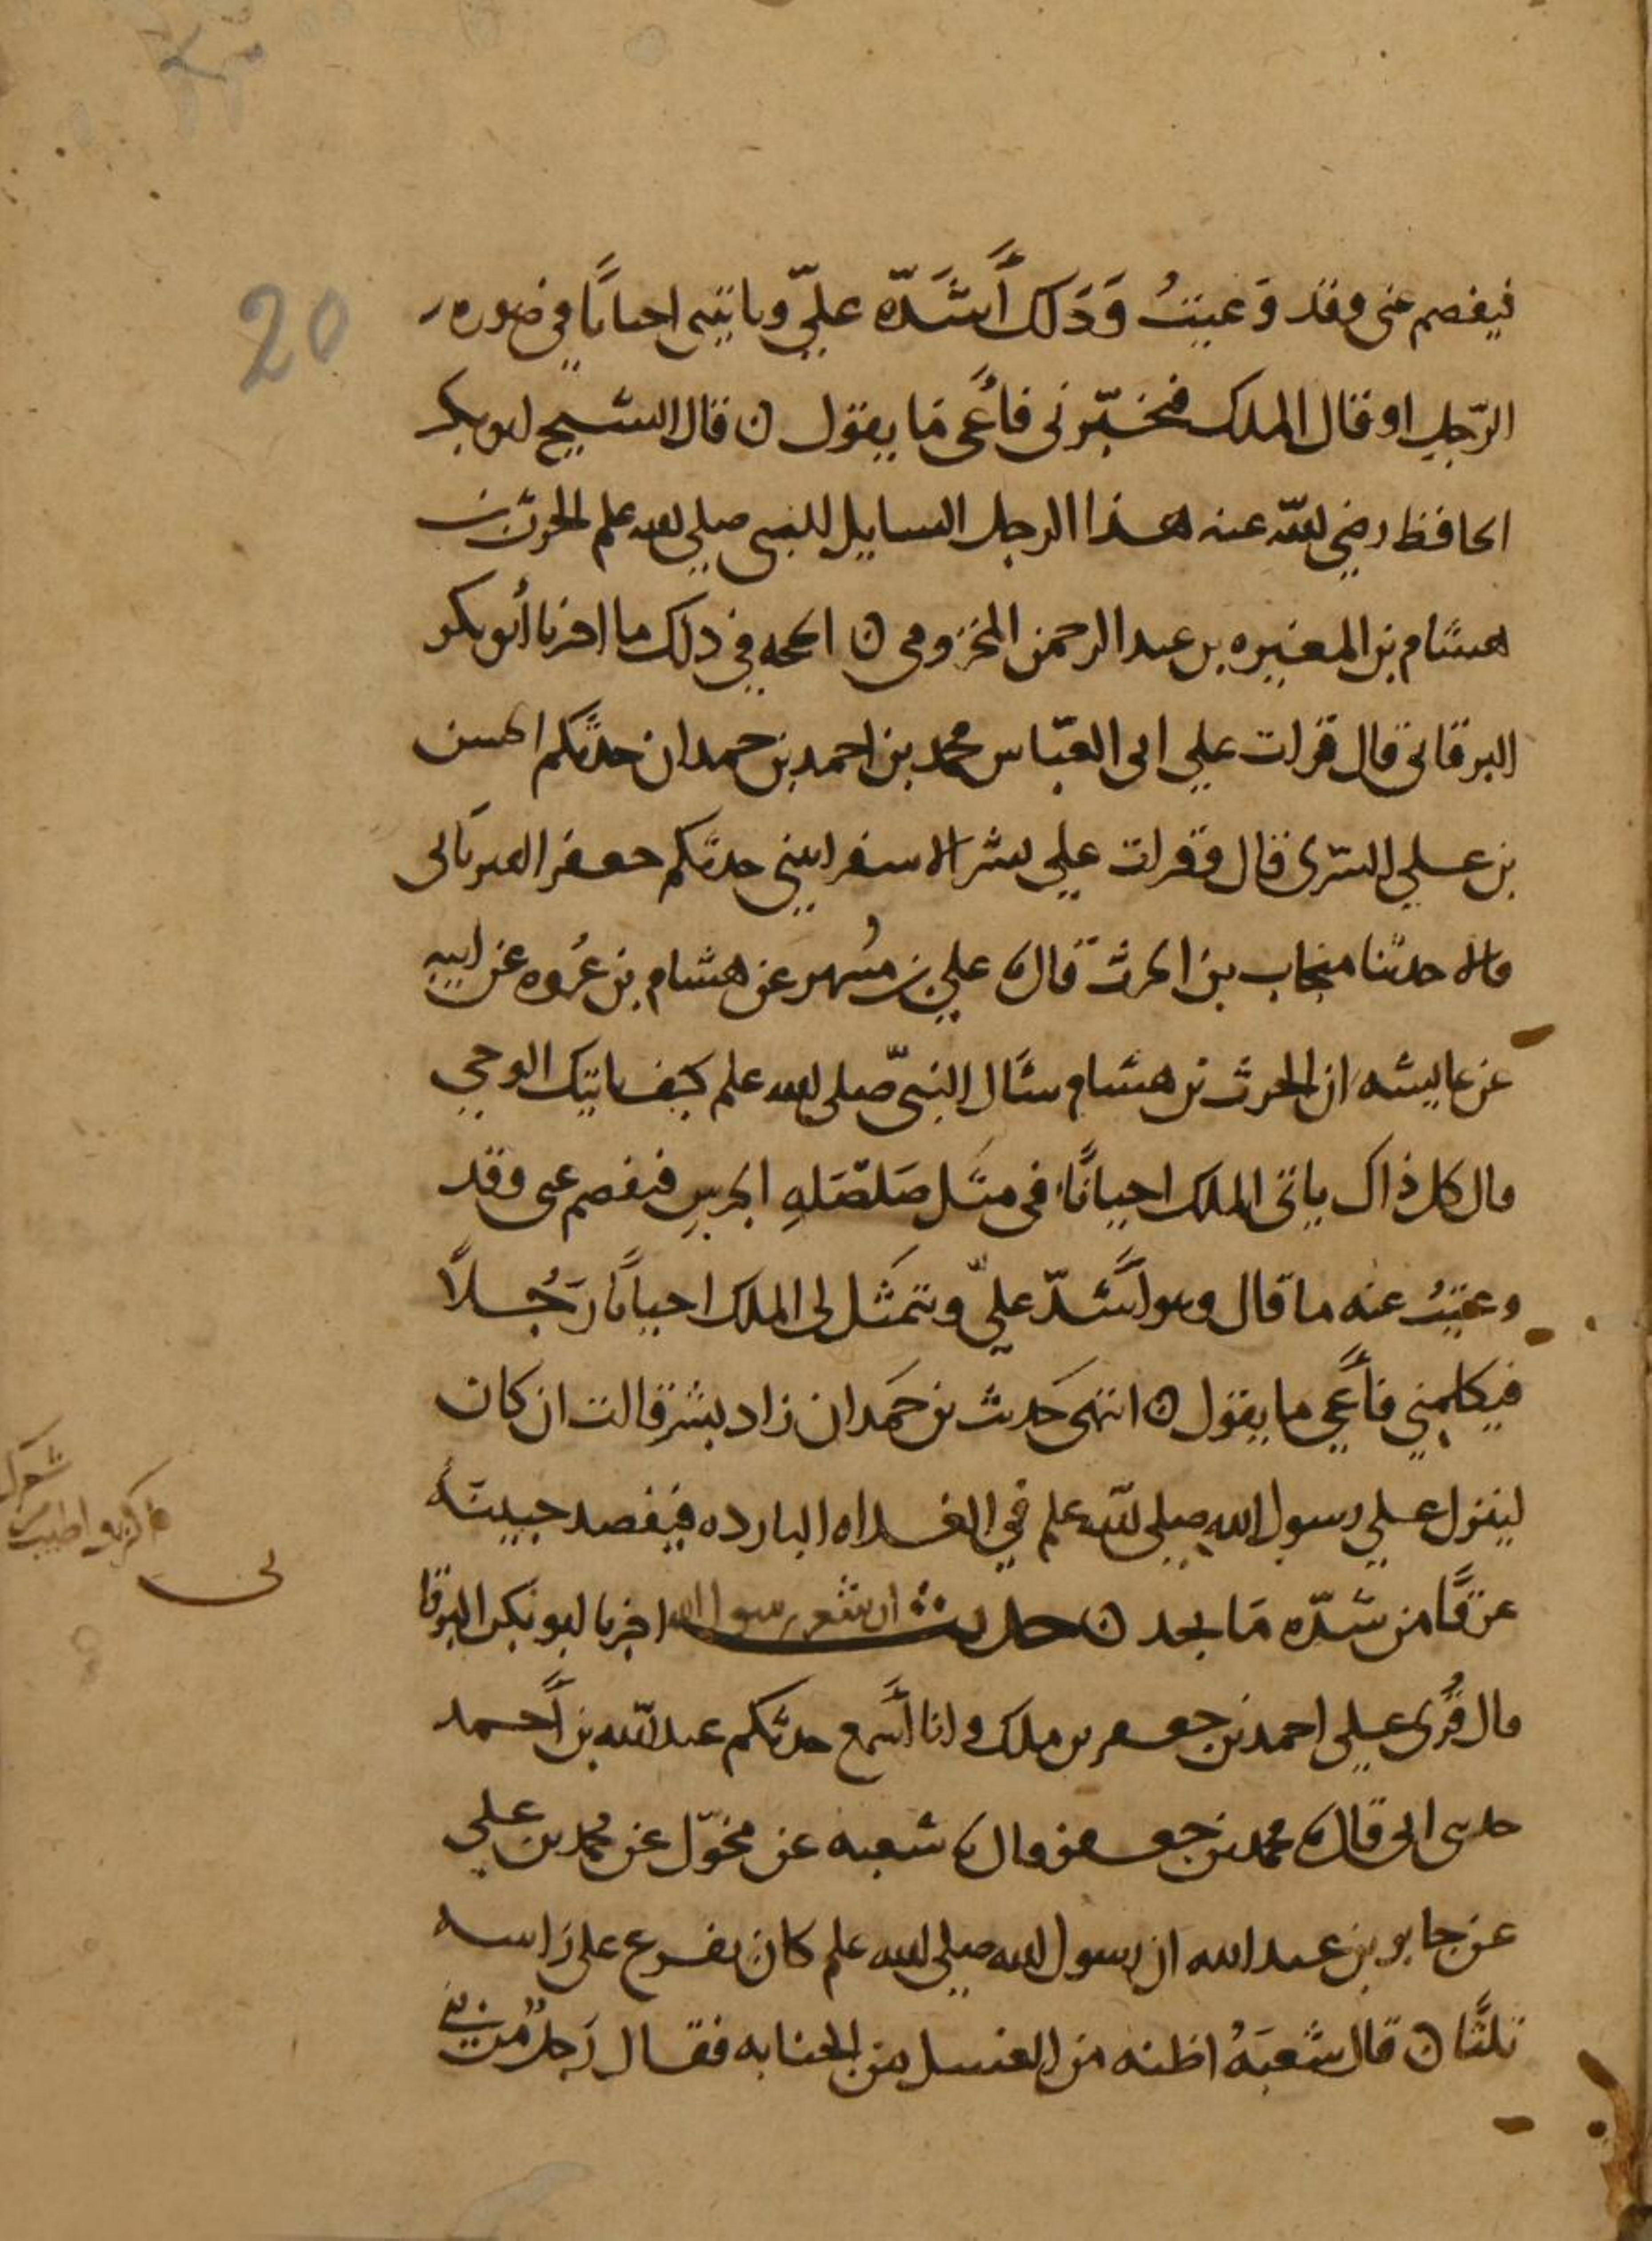 20
فيفصم عنى وقد وَعيتُ وَذلك أَشَدّه علىّ وياتينى احيانًا فى صوره
الرّجل او قال الملك فيخبّرنى فأعى مَا يقول ن قال الشيخ ابو بكر
الحافظ رضي الله عنه هذا الرجل السايل للنبى صلى الله علم الحرث بن
هشام بن المغيره بن عبد الرحمن المخزومى ن الحجه فى ذلك ما اخرنا أبو بكر
البرقانى قال قرات على ابى العبّاس محمد بن احمد بن حمدان حدثكم الحسن
بن على السّرى قال وقرات على بشر الاسفراينى حدثكم جعفر الفريابى
قالا حدثنا منجاب بن الحرث قال ثنا على بن مُسهر عن هشام بن عُروه عن ابيه
عن عايشه ان الحرث بن هشام سَال النبىّ صلى الله علم كيف ياتيك الوحي
قال كل ذاك ياتى الملك احيانًا فى مثل صَلصَلهِ الجرسِ فيفصم عنى وقد
وعيتُ عنه ما قال وهو أشدّ علىّ ويتمثل لى الملك احيانًا رَجُلاً
فيكلمني فأعي ما يقول ن انتهى حَديث بن حَمدان زاد بشر قالت ان كان
لينزل على رسول الله صلى الله علم في الغداه البارده فيفصد جبينهُ
عرقًا من شدّه مَا يجد ن حديث ان شعر رسول الله اخرنا ابو بكر البرقا
قال قُرى على احمد بن جعفر بن ملك وانا أسمع حدثكم عبد الله بن أحمد
حدثنى ابى قال ثنا محمد بن جعفر قال ثنا شعبه عن مخوّل عن محمد بن على
عن جابر بن عبد الله ان رسول الله صلى الله علم كان يفرغ على راسه
ثلثًا ن قال شعبَهُ اظنه من الغسل من الجنابه فقال رَجلٌ من بنى
شعرك
اكثر واطيب
نى